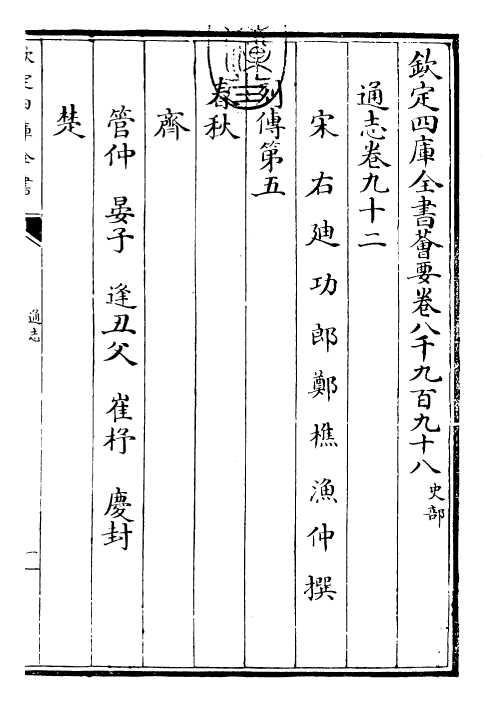 欽定四庫全書薈要卷八千九百九十八 史部
通志卷九十二
宋右迪功郎鄭樵漁仲撰
列傳第五
春秋
齊
管仲 晏子 逢丑父 崔杼 慶封
楚
欽定四庫全書
通志
一